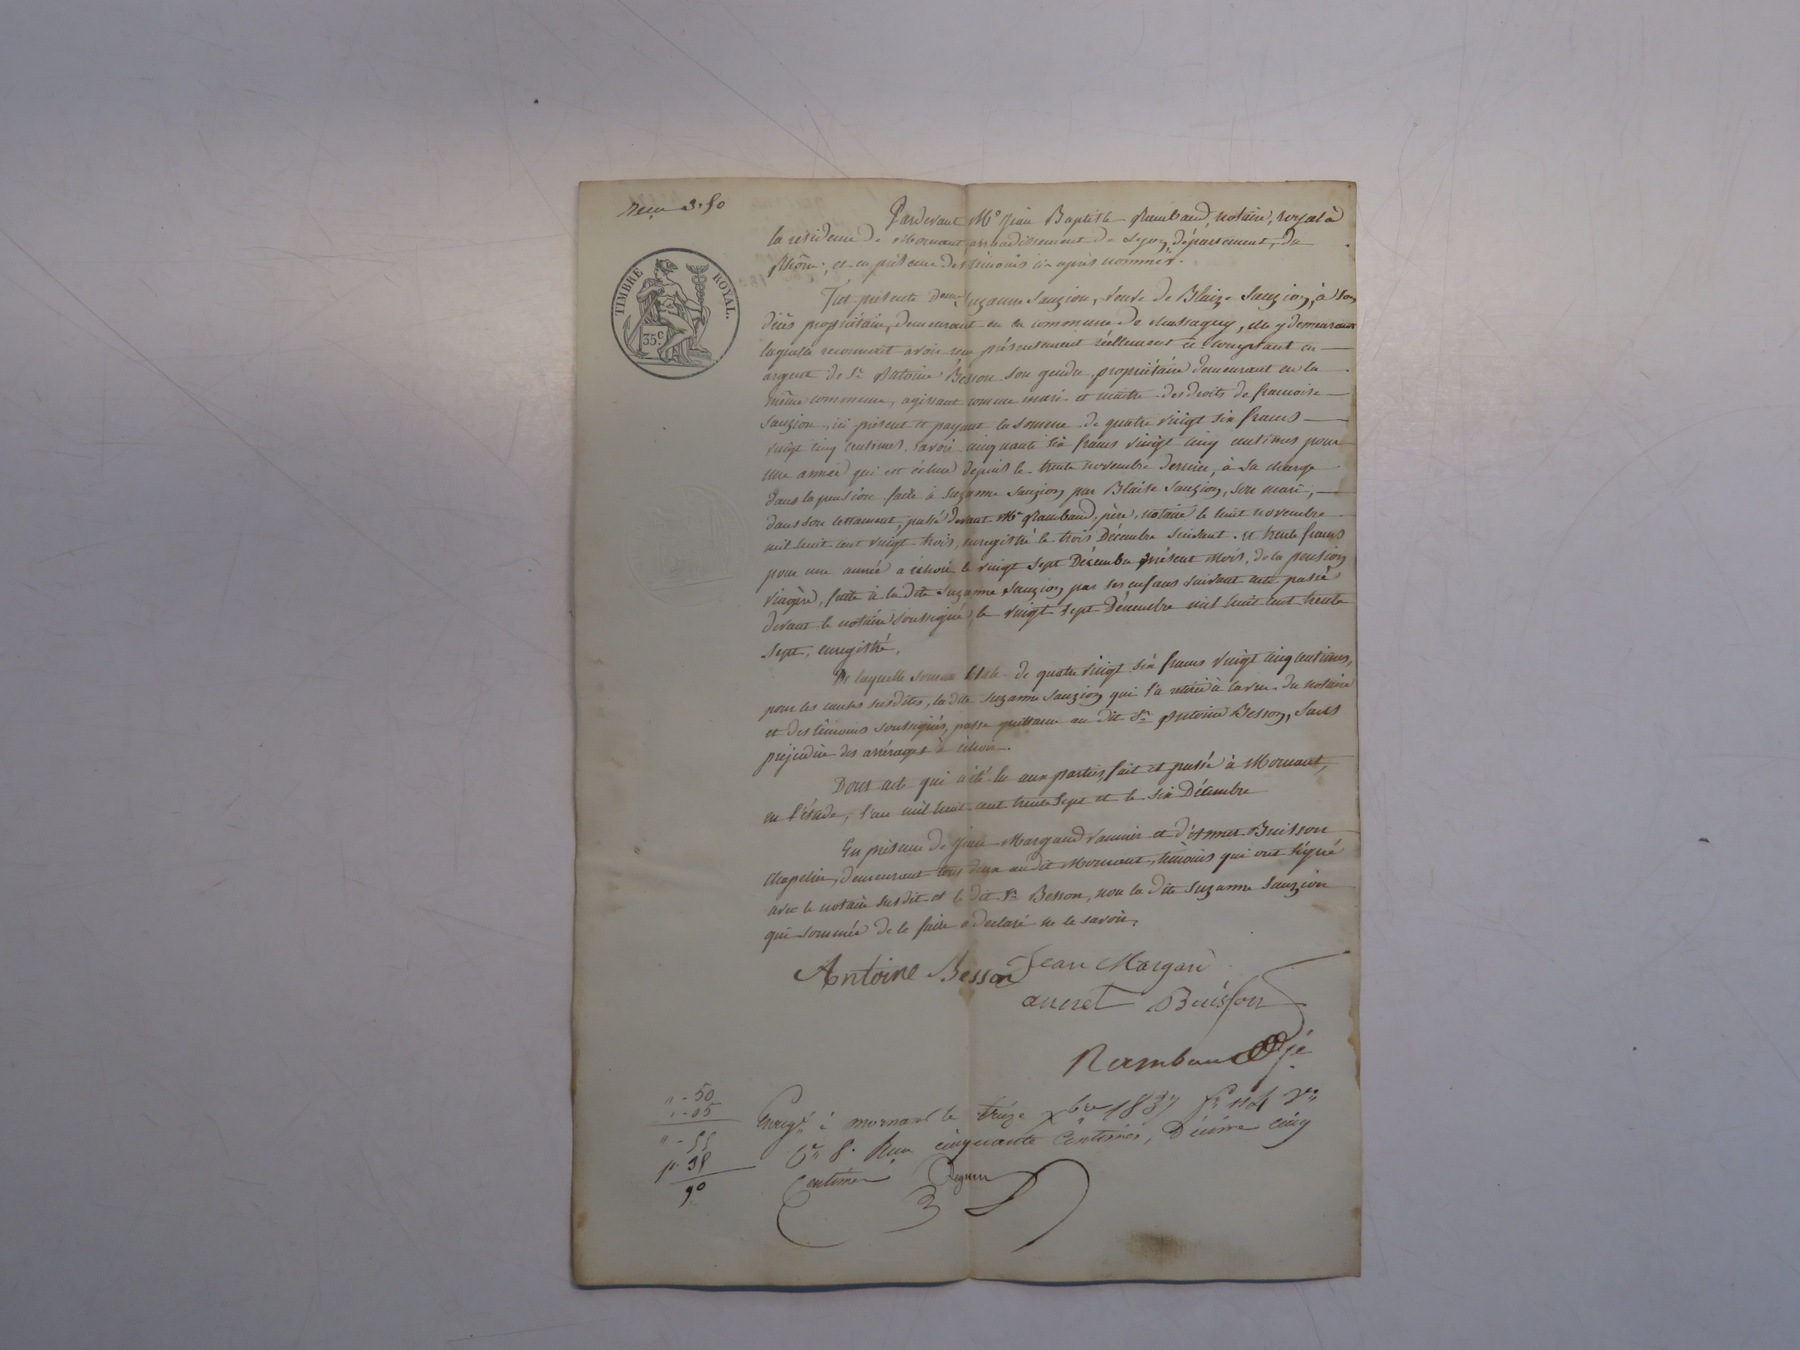 Reçu 3.50
TIMBRE ROYAL.
35c.
Pardevant Me Jean Baptiste Rambaud, notaire, royal à
la résidence de Mornant arrondissement de Lyon, département, du
Rhône, et en présence des témoins ci-après nommés.
Fut présente dame Suzanne Sauzion, veuve de Blaize Sauzion, à son
décès propriétaire, demeurant en la commune de Chassagny, elle y demeurant
laquelle reconnait avoir reçu présentement réellement et comptant en
argent de Sr Antoine Besson son gendre, propriétaire demeurant en la
même commune, agissant comme mari et maitre des droits de françoise
Sauzion, ici présent et payant la somme de quatre vingt six francs
vingt cinq centimes, savoir cinquante six francs vingt cinq centimes pour
une année qui est échue depuis le trente novembre dernier, à sa charge
dans la pension faite à Suzanne Sauzion par Blaise Sauzion, son mari,
dans son testament, passé devant Me Rambaud, père, notaire le huit novembre
mil huit cent vingt-trois, enregistré le trois Décembre suivant et trente francs
pour une année à échoir le vingt sept Décembre présent mois, de la pension
viagère, faite à la dite Suzanne Sauzion par ses enfans suivant acte passé
devant le notaire soussigné, le vingt sept Décembre mil huit cent trente
sept, enregistré.
De laquelle somme totale de quatre vingt six francs vingt cinq centimes,
pour les causes susdites, la dite Suzanne Sauzion qui l'a retirée à la vue du notaire
et des témoins soussignés, passe quittance au dit Sr Antoine Besson, sans
préjudice des arrérages à échoir.
Dont acte qui a été lu aux parties, fait et passé à Mornant,
en l'étude, l'an mil huit cent trente sept et le six Décembre
En présence de Jean Margand vannier et d'Esmet Buisson
chapelier, demeurant tous deux au dit Mornant, témoins qui ont signé
avec le notaire susdit et le dit Sr Besson, non la dite Suzanne Sauzion
qui sommée de le faire a déclaré ne le savoir.
Antoine Besson Jean Margard
Buisson
Rambaud
Enregé à mornant le treize Xbre 1837 fo 110
Reçu cinquante centimes, Décime cinq
centimes
" - 50
" - 05
" - 55
35
90